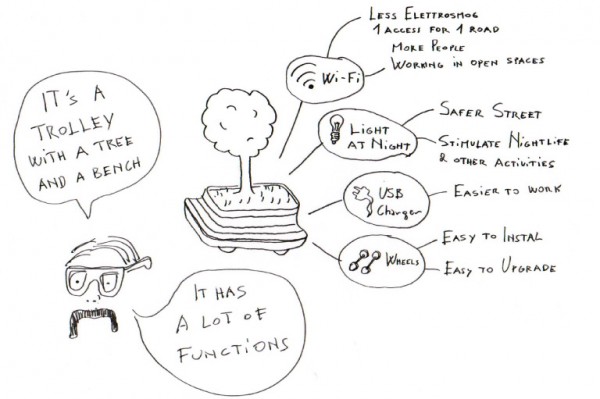 IT'S A
TROLLEY
WITH A TREE
AND A BENCH
IT HAS
A LOT OF
FUNCTIONS
WI-FI
LESS ELETTROSMOG
1 ACCESS FOR 1 ROAD
MORE PEOPLE
WORKING IN OPEN SPACES
LIGHT
AT NIGHT
SAFER STREET
STIMULATE NIGHTLIFE
& OTHER ACTIVITIES
USB
Charger
EASIER TO WORK
WHEELS
EASY TO INSTAL
EASY TO UPGRADE